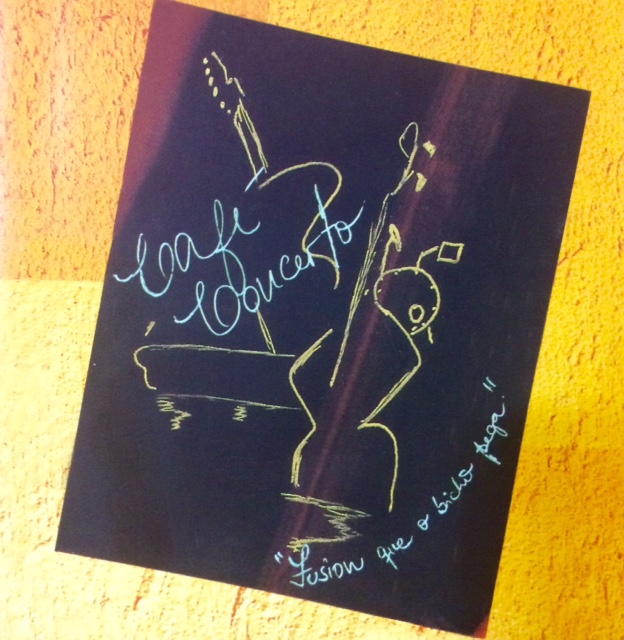 Café
Concerto
"Fusion que o bicho pega."